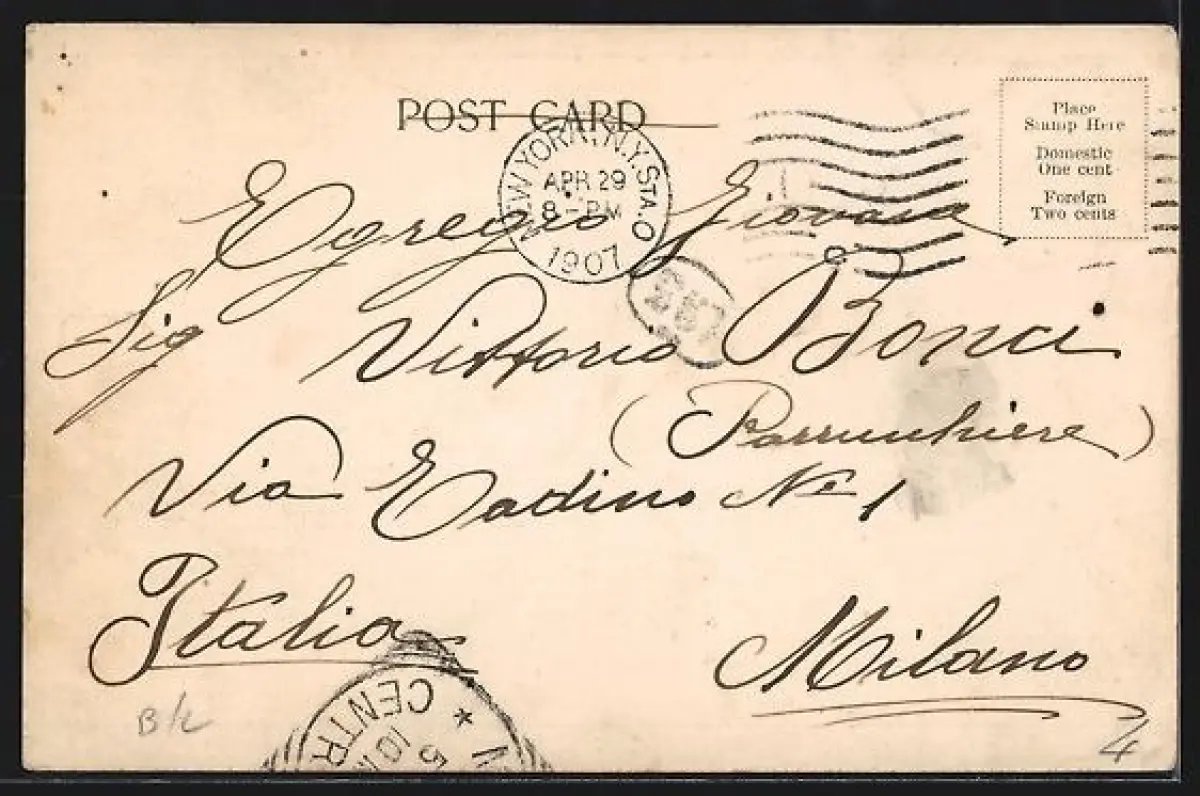 POST CARD
NEW YORK, N.Y. STA. O
APR 29
8-PM
1907
Place
Stamp Here
Domestic
One cent
Foreign
Two cents
Egregio Giovane
Sig Vittorio Bonci
(Parrucchiere)
Via Eadino No 1
Italia
Milano
B/L
4
CENTR
5
10